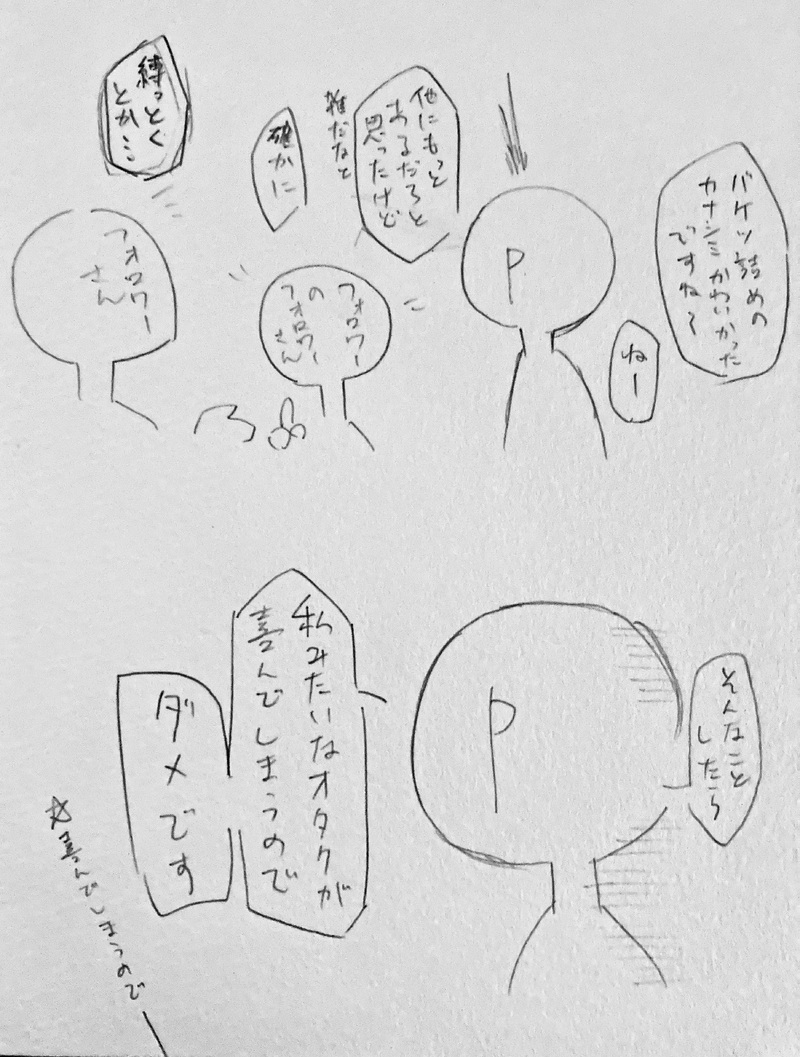 バケツ詰めの
カナシミかわいかった
ですね〜
ねー
P
他にもっと
あるだろと
思ったけど
雑だなと
確かに
フォロワー
の
フォロワー
さん
縛っとく
とか…
フォロワー
さん
そんなこと
したら
P
私みたいなオタクが
喜んでしまうので
ダメです
喜んでしまうので